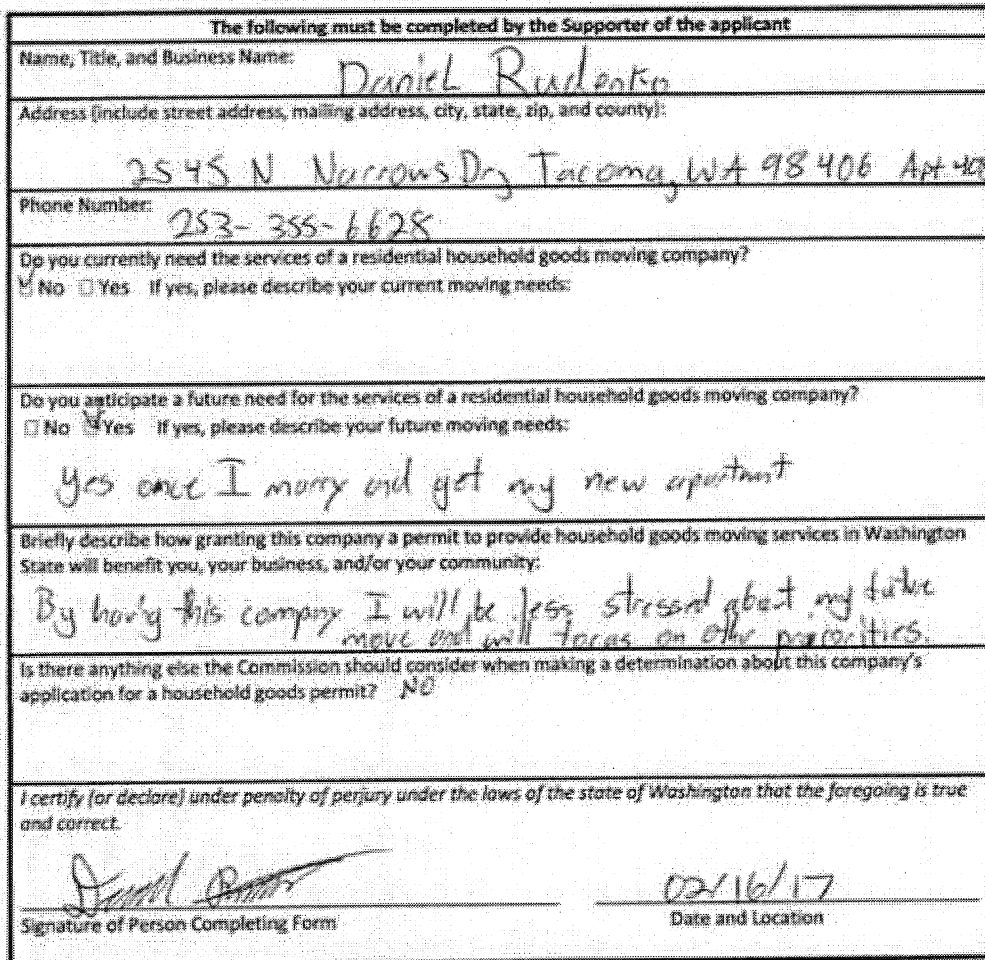 The following must be completed by the Supporter of the applicant
Name, Title, and Business Name:
Daniel Rudenko
Address (include street address, mailing address, city, state, zip, and county):
2545 N Narrows Dr, Tacoma, WA 98406 Apt
Phone Number:
253-355-6628
Do you currently need the services of a residential household goods moving company?
☑ No ☐ Yes If yes, please describe your current moving needs:
Do you anticipate a future need for the services of a residential household goods moving company?
☐ No ☑ Yes If yes, please describe your future moving needs:
Yes once I marry and get my new apartment
Briefly describe how granting this company a permit to provide household goods moving services in Washington
State will benefit you, your business, and/or your community:
By hav'g this company I will be less stressed about my future
move and will focus on other priorities.
Is there anything else the Commission should consider when making a determination about this company's
application for a household goods permit? NO
I certify (or declare) under penalty of perjury under the laws of the state of Washington that the foregoing is true
and correct.
02/16/17
Signature of Person Completing Form
Date and Location